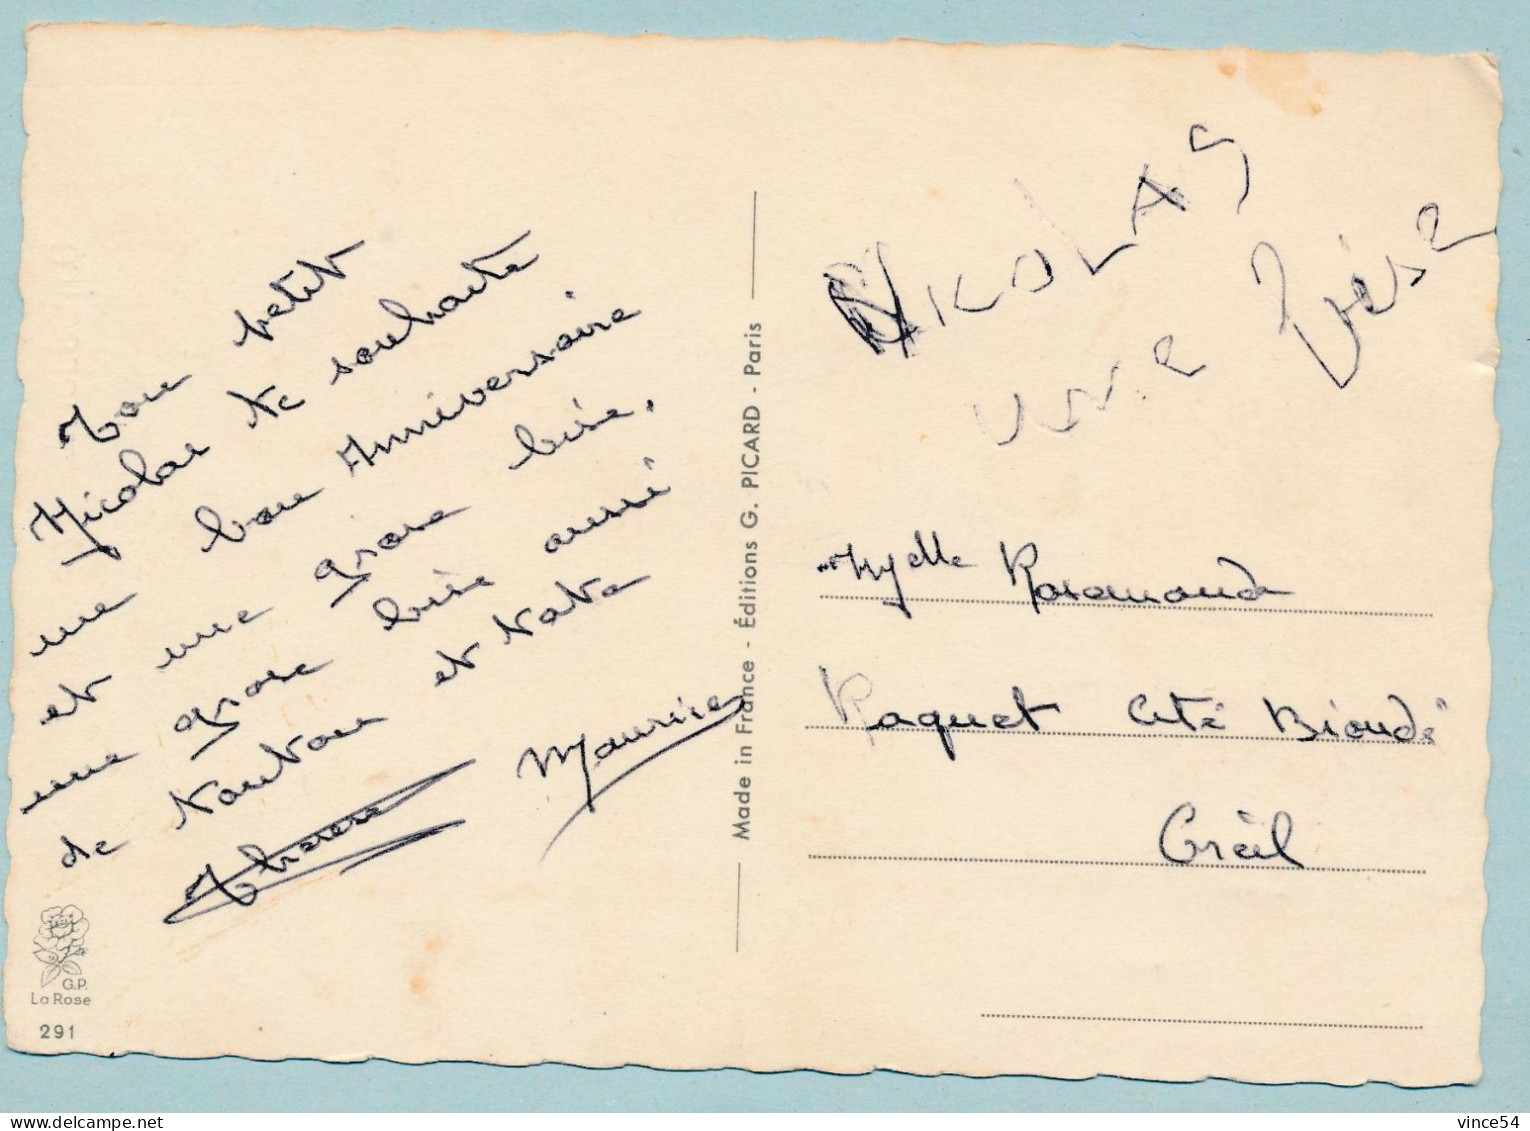 Mon petit
Nicolas te souhaite
un bon Anniversaire
et une grosse bise,
une grosse bise aussi
de Tonton et Tata
Maurice
Thérèse
G.P.
La Rose
291
Made in France - Éditions G. PICARD - Paris
NIKOLAS
une bise
Myelle Roxemonde
Raquet Cité Biondi
Creil
delcampe.net
vince54